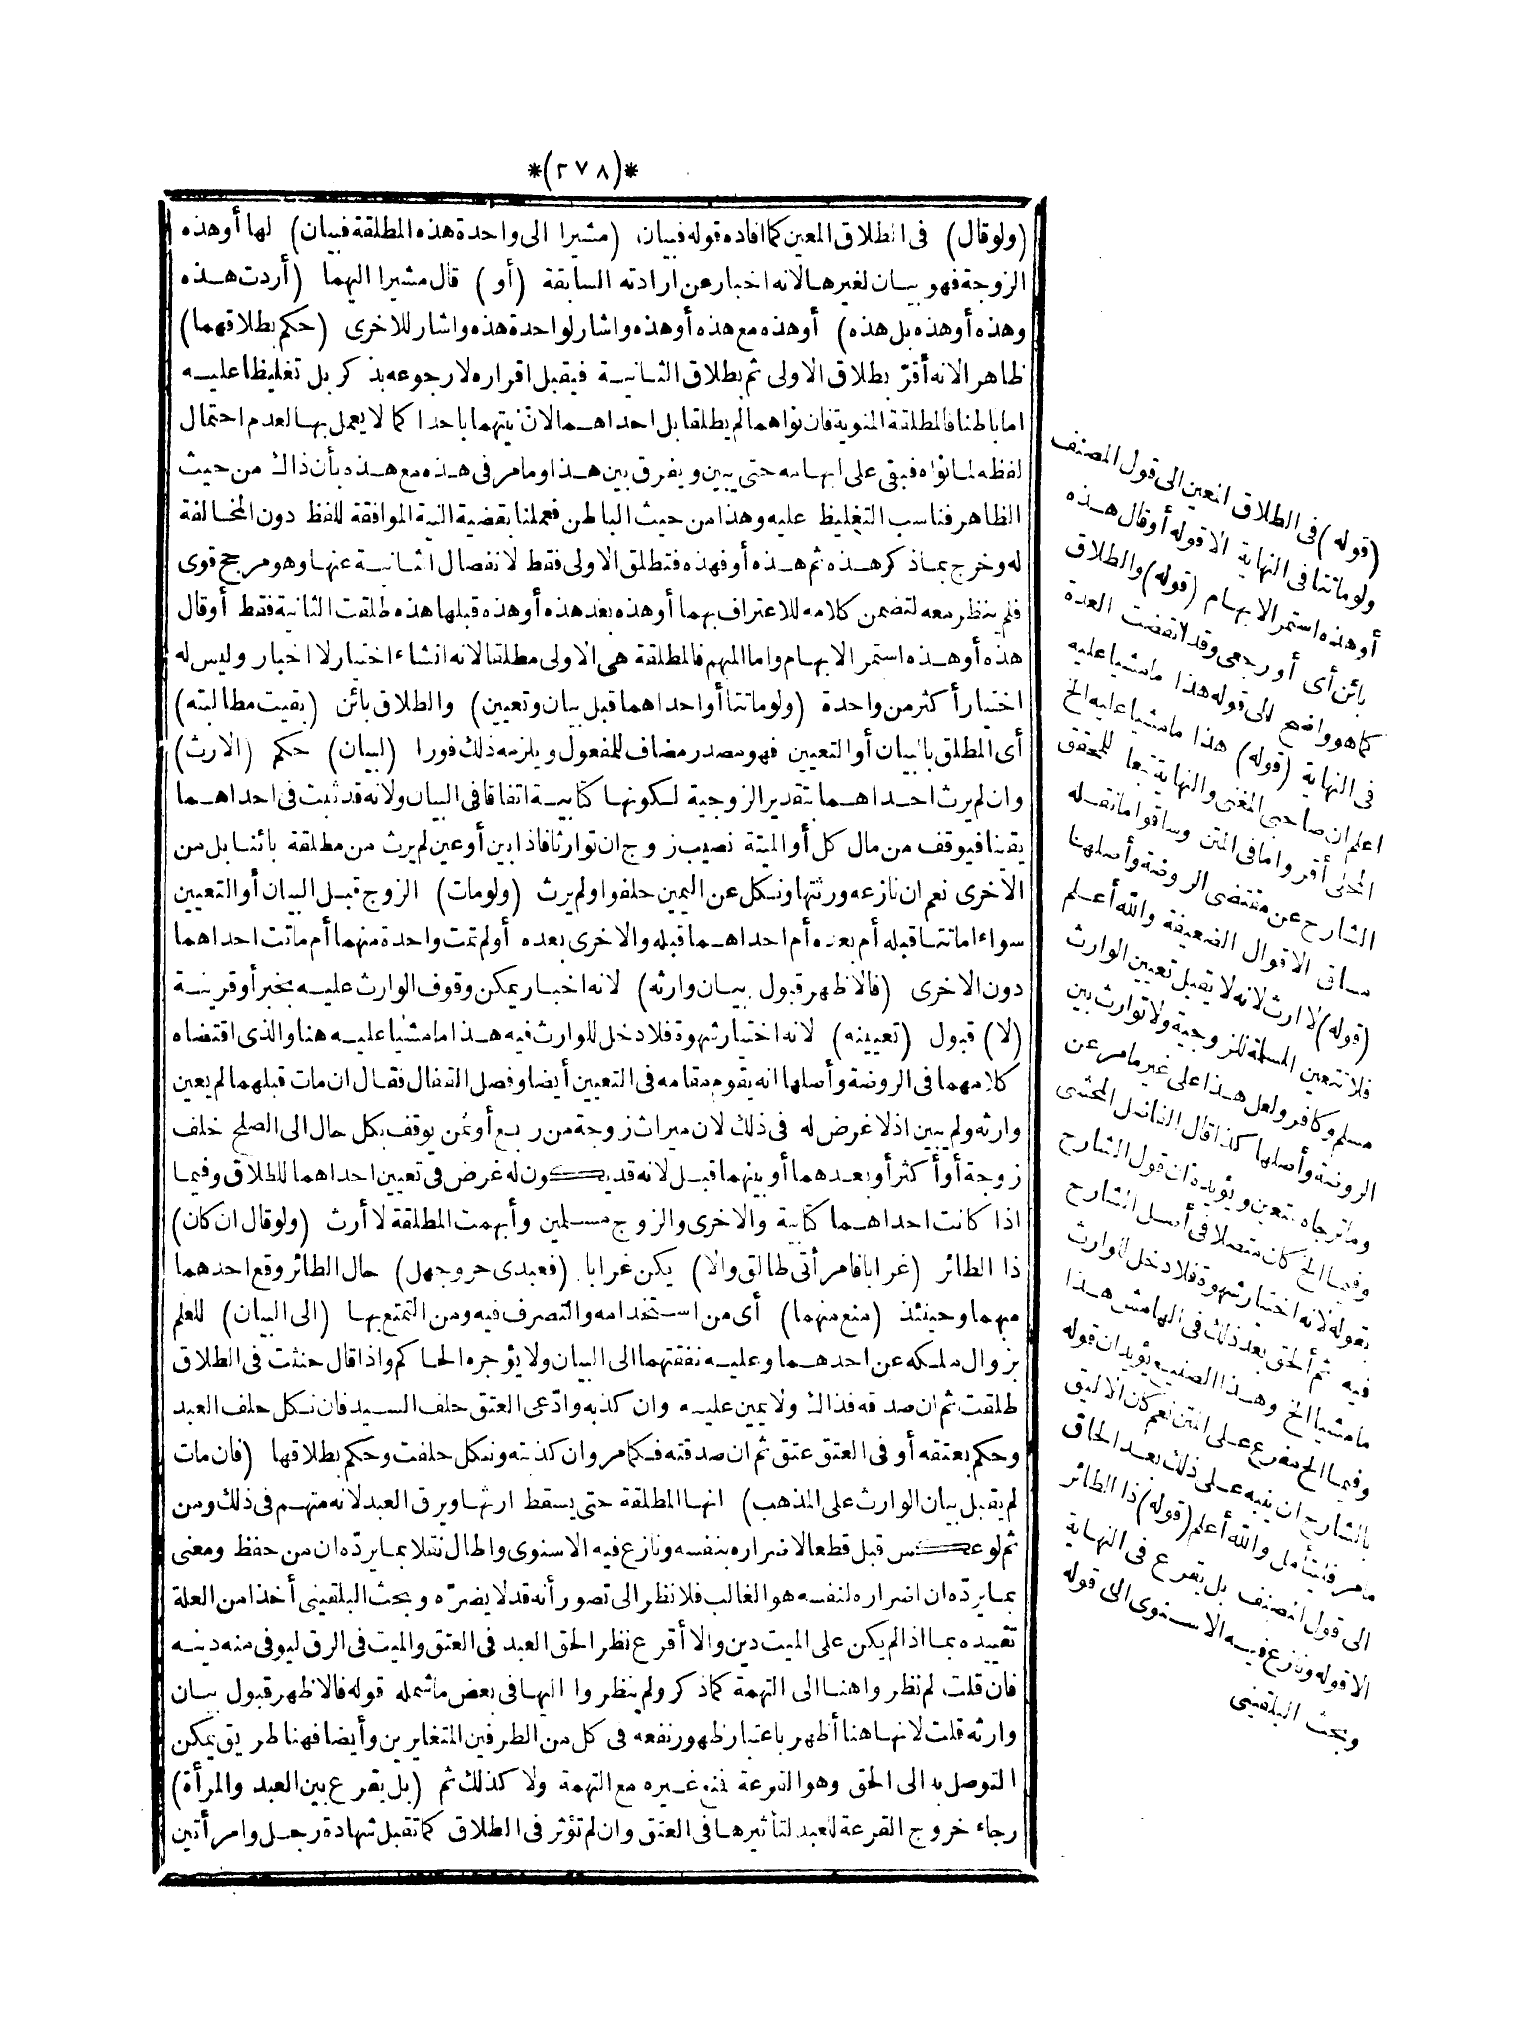 *(٢٧٨)*
(ولو قال) فى الطلاق المعين كما افاده قوله فبيان (مشيرا الى واحدة هذه المطلقة فبيان) لها أو هذه
الزوجة فهو بيان لغيرها لانه اخبار عن ارادته السابقة (أو) قال مشيرا اليهما (أردت هذه
وهذه أو هذه بل هذه) أو هذه مع هذه أو هذه واشار لواحدة هذه واشار للاخرى (حكم بطلاقهما)
ظاهرا لانه أقرّ بطلاق الاولى ثم بطلاق الثانية فيقبل اقراره لا رجوعه بذكر بل تغليظا عليه
اما باطنا فالمطلقة المنوية فان نواهما لم يطلقا بل احداهما لانّ نيتهما باحدا كما لا يعمل بها لعدم احتمال
لفظه لما نواه فبقى على ابهامه حتى يبين ويفرق بين هذا وما مر فى هذه مع هذه بأن ذاك من حيث
الظاهر فناسب التغليظ عليه وهذا من حيث الباطن فعملنا بقضية النية الموافقة للفظ دون المخالفة
له وخرج بماذكر هذه ثم هذه أو فهذه فتطلق الاولى فقط لانفصال الثانية عنها وهو مرجح قوى
فلم ينظر معه لتضمن كلامه للاعتراف بهما أو هذه بعد هذه أو هذه قبلها هذه طلقت الثانية فقط أو قال
هذه أو هذه استمر الابهام واما المبهم فالمطلقة هى الاولى مطلقا لانه انشاء اختيار لا اخبار وليس له
اختيار أكثر من واحدة (ولو ماتتا أو احداهما قبل بيان وتعيين) والطلاق بائن (بقيت مطالبته)
أى المطلق بالبيان أو التعيين فهو مصدر مضاف للمفعول ويلزمه ذلك فورا (لبيان) حكم (الارث)
وان لم يرث احداهما بتقدير الزوجية لكونها كتابية اتفاقا فى البيان ولانه قد ثبت فى احداهما
يقينا فيوقف من مال كل أو الميتة نصيب زوج ان توارثا فاذا بين أو عين لم يرث من مطلقة بائنا بل من
الاخرى نعم ان نازعه ورثتها ونكل عن اليمين حلفوا ولم يرث (ولو مات) الزوج قبل البيان أو التعيين
سواء اماتتا قبله أم بعده أم احداهما قبله والاخرى بعده أو لم تمت واحدة منهما أم ماتت احداهما
دون الاخرى (فالاظهر قبول بيان وارثه) لانه اخبار يمكن وقوف الوارث عليه بخبر أو قرينة
(لا) قبول (تعيينه) لانه اختيار شهوة فلا دخل للوارث فيه هذا ما مشيا عليه هنا والذى اقتضاه
كلامهما فى الروضة وأصلها انه يقوم مقامه فى التعيين أيضا وفصل القفال فقال ان مات قبلهما لم يعين
وارثه ولم يبين اذ لا غرض له فى ذلك لان ميراث زوجة من ربع أو ثمن يوقف بكل حال الى الصلح خلف
زوجة أو أكثر أو بعدهما أو بينهما قبل لانه قد يكون له غرض فى تعيين احداهما للطلاق وفيما
اذا كانت احداهما كتابية والاخرى والزوج مسلمين وأبهمت المطلقة لا أرث (ولو قال ان كان)
ذا الطائر (غرابا فامرأتى طالق والا) يكن غرابا (فعبدى حر وجهل) حال الطائر وقع احدهما
مبهما وحينئذ (منع منهما) أى من استخدامه والتصرف فيه ومن التمتع بها (الى البيان) للعلم
بزوال ملكه عن احدهما وعليه نفقتهما الى البيان ولا يؤجره الحاكم واذا قال حنثت فى الطلاق
طلقت ثم ان صدقه فذاك ولا يمين عليه وان كذبه وادّعى العتق حلف السيد فان نكل حلف العبد
وحكم بعتقه أو فى العتق عتق ثم ان صدقته فكما مر وان كذبته ونكل حلفت وحكم بطلاقها (فان مات
لم يقبل بيان الوارث على المذهب) انها المطلقة حتى يسقط ارثها ويرق العبد لانه متهم فى ذلك ومن
ثم لو عكس قبل قطعا لاضراره بنفسه ونازع فيه الاسنوى واطال نقلا بما يردّه ان من حفظ ومعنى
بما يردّه ان اضراره لنفسه هو الغالب فلا نظر الى تصور أنه قد لا يضرّه وبحث البلقينى أخذا من العلة
تقييده بما اذا لم يكن على الميت دين والا أقرع نظرا لحق العبد فى العتق والميت فى الرق ليوفى منه دينه
فان قلت لم نظروا هنا الى التهمة كما ذكر ولم ينظروا اليها فى بعض ما شمله قوله فالاظهر قبول بيان
وارثه قلت لانها هنا أظهر باعتبار ظهور نفعه فى كل من الطرفين المتغايرين وأيضا فهنا طريق يمكن
التوصل به الى الحق وهو القرعة فمنع غيره مع التهمة ولا كذلك ثم (بل يقرع بين العبد والمرأة)
رجاء خروج القرعة للعبد لتأثيرها فى العتق وان لم تؤثر فى الطلاق كما تقبل شهادة رجل وامرأتين
(قوله) فى الطلاق المعين الى قول المصنف
ولو ماتتا فى النهاية الا قوله أو قال هذه
أو هذه استمر الابهام (قوله) والطلاق
بائن أى أو رجعى وقد انقضت العدة
كما هو واضح الى قوله هذا ما مشيا عليه
فى النهاية (قوله) هذا ما مشيا عليه الخ
اعلم ان صاحبى المغنى والنهاية تبعا للمحقق
المحلى أقروا ما فى المتن وساقوا ما نقله
الشارح عن مقتضى الروضة وأصلها
مساق الاقوال الضعيفة والله أعلم
(قوله) لا ارث لانه لا يقبل تعيين الوارث
فلا تتعين المسلمة للزوجية ولا توارث بين
مسلم وكافر ولعل هذا على غير ما مر عن
الروضة وأصلها كذا قال الفاضل المحشى
وما ترجاه متعين ويؤيده ان قول الشارح
وفيما الخ كان متصلا فى أصل الشارح
بقوله لانه اختيار شهوة فلا دخل للوارث
فيه ثم ألحق بعد ذلك فى الهامش هذا
ما مشيا الخ وهذا الصنيع يؤيد ان قوله
وفيما الخ مفرع على المتن نعم كان الاليق
بالشارح ان ينبه على ذلك بعد الحاق
ما مر فليتأمل والله أعلم (قوله) ذا الطائر
الى قول المصنف بل يقرع فى النهاية
الا قوله ونازع فيه الاسنوى الى قوله
وبحث البلقينى